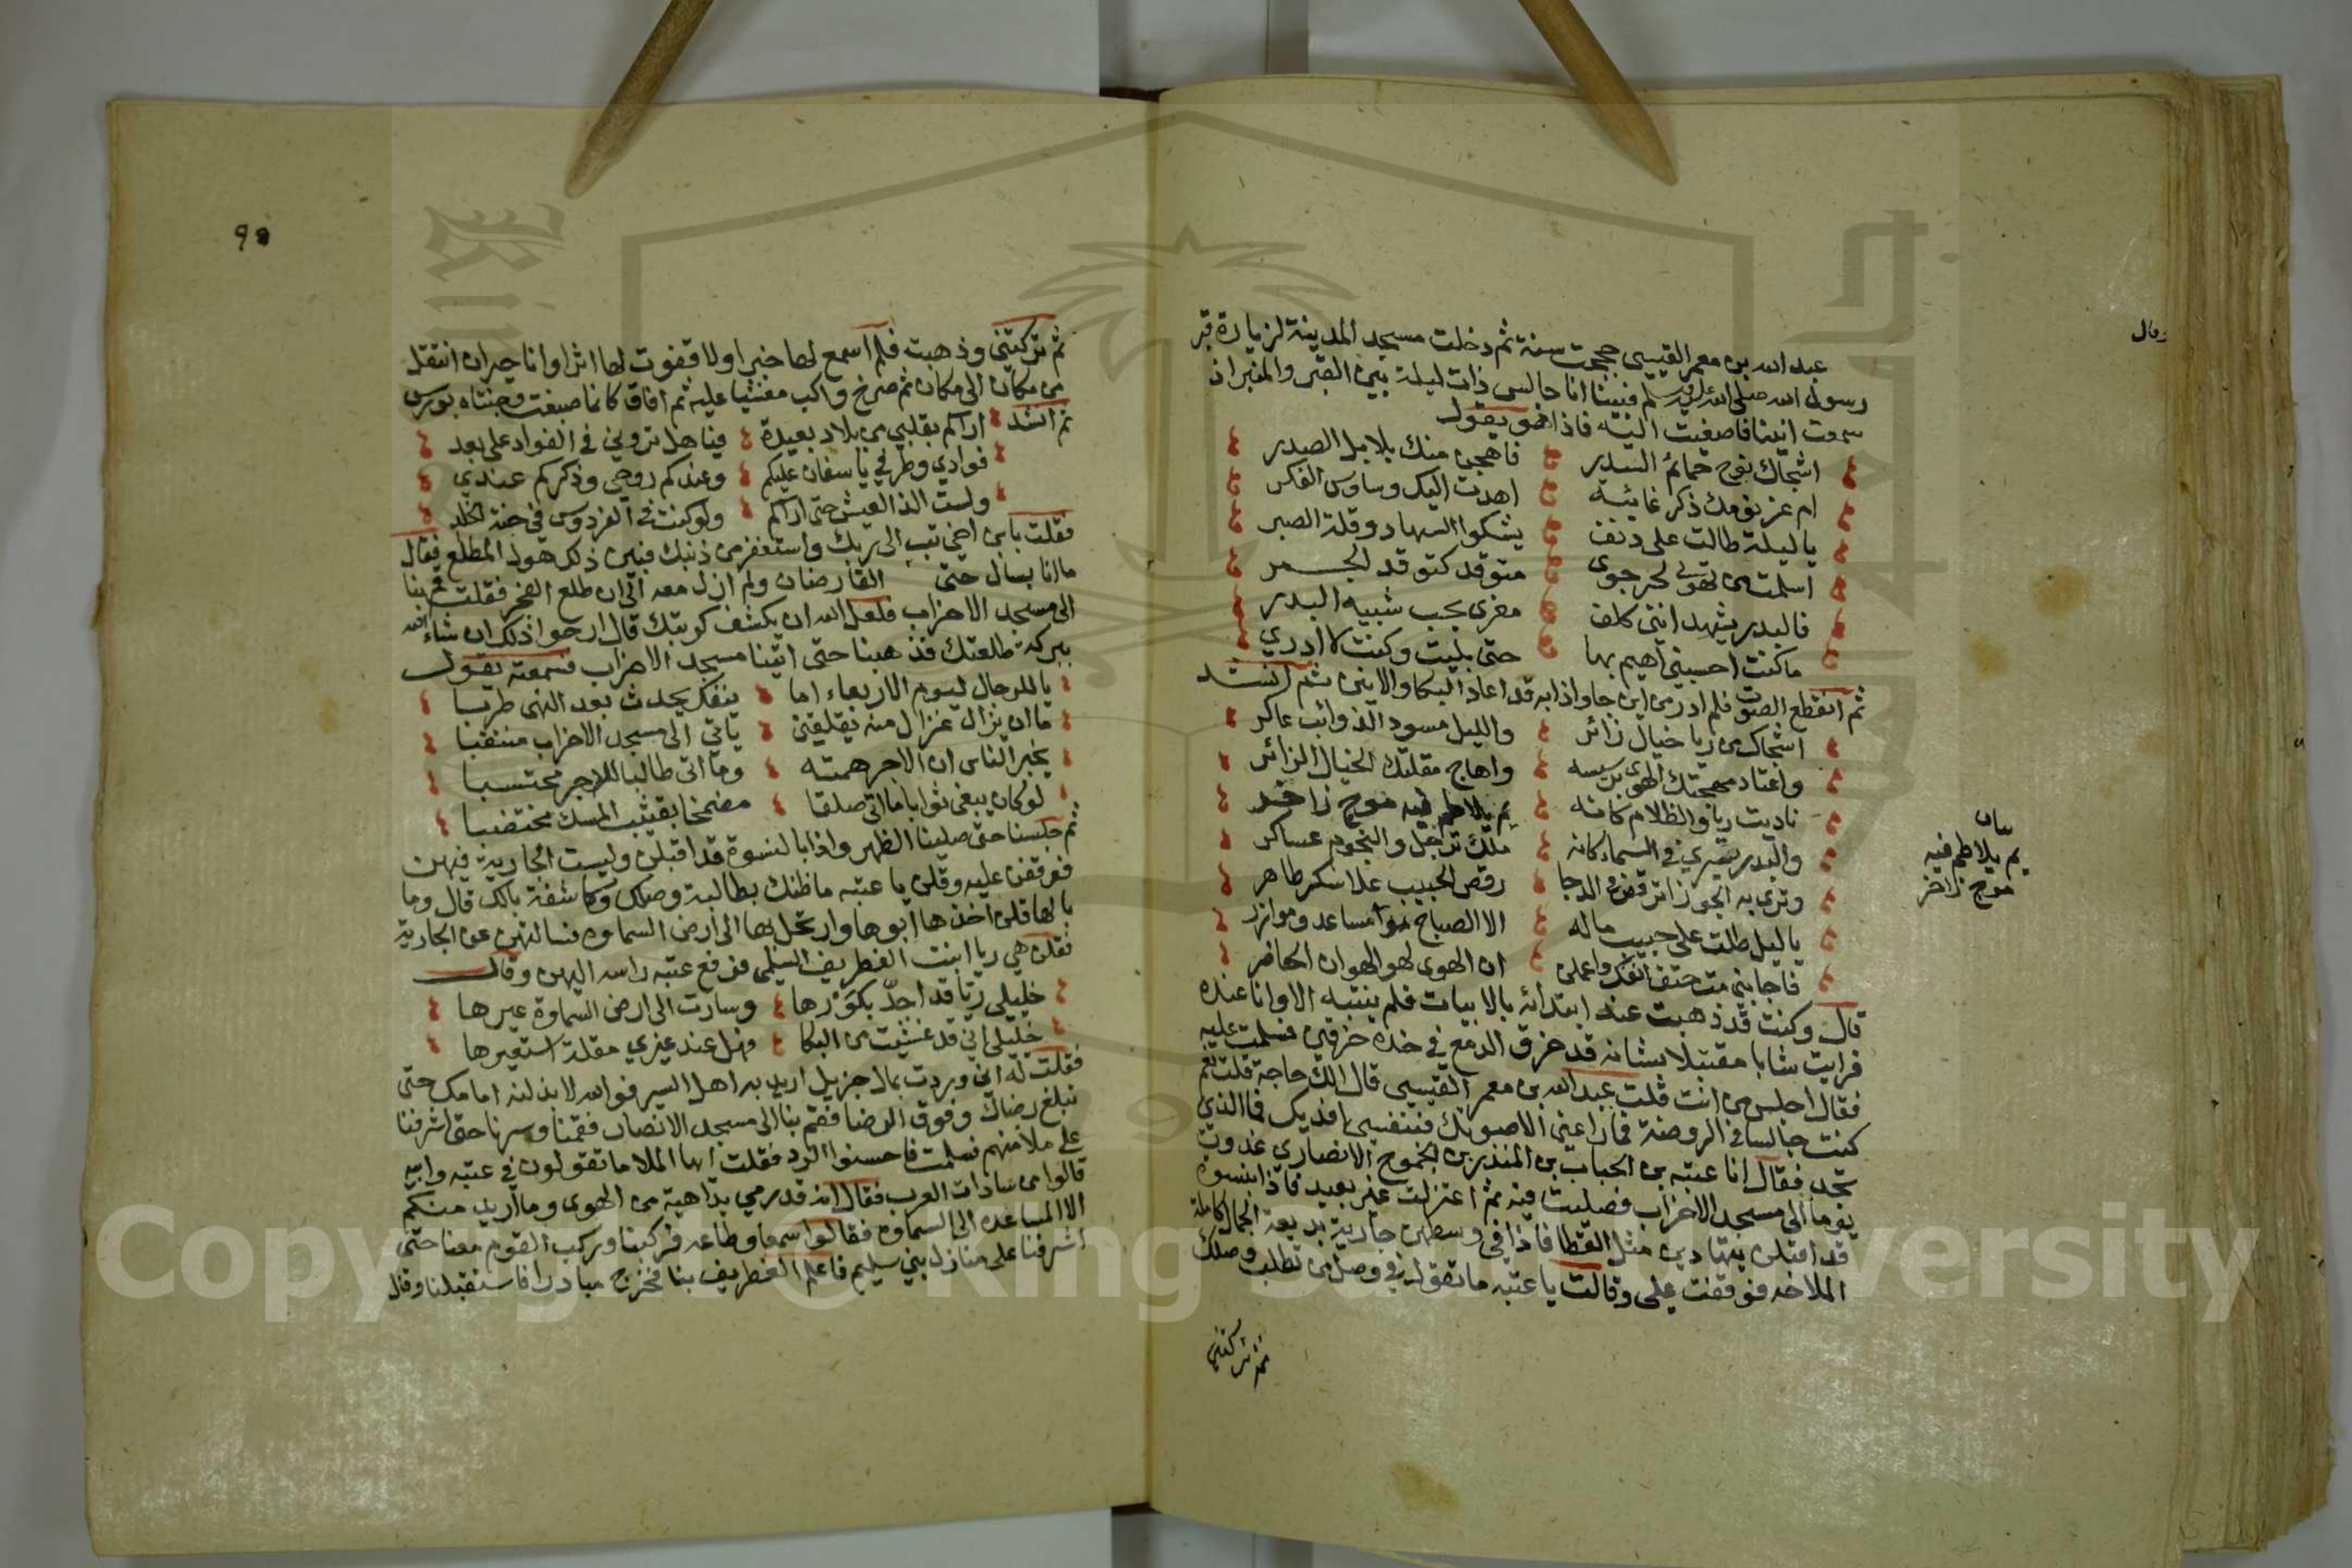 عبد الله بن معمر القيسي حججت سنة ثم دخلت مسجد المدينة لزيارة قبر
رسول الله صلى الله عليه وسلم فبينا انا جالس ذات ليلة بين القبر والمنبر اذ
سمعت انينا فاصغيت اليه فاذا هو يقول
اشجاك نوح حمائم السدر فاهجن منك بلابل الصدر
ام عز نومك ذكر غانية اهدت اليك وساوس الفكر
يا ليلة طالت على دنف يشكوا السهاد وقلة الصبر
اسلمت من تهوى لحر جوى متوقد كتوقد الجمر
فالبدر يشهد انني كلف مغرى بحب شبيه البدر
ما كنت احسبني اهيم بها حتى بليت وكنت لا ادري
ثم انقطع الصوت فلم ادر من اين جا واذا به قد اعاد البكا والانين ثم انشد
اشجاك من ريا خيال زائر والليل مسود الذوائب عاكر
واعتاد مهجتك الهوى برسيسه واهاج مقلتك الخيال الزائر
ناديت ريا والظلام كانه يم يلاطم فيه موج زاخر
والبدر يسري في السماء كانه ملك ترجل والنجوم عساكر
وترى به الجوزا ترقص في الدجا رقص الحبيب علاه سكر طاهر
يا ليل طلت على حبيب ماله الا الصباح مساعد وموازر
فاجابني مت حتف انفك واعلمن ان الهوى لهو الهوان الحاضر
قال وكنت قد ذهبت عند ابتدائه بالابيات فلم ينتبه الا وانا عنده
فرايت شابا مقتبلا شبابه قد خرق الدمع في خده خرقين فسلمت عليه
فقال اجلس من انت قلت عبد الله بن معمر القيسي قال الك حاجة قلت نعم
كنت جالسا في الروضة فما راعني الا صوتك فبنفسي افديك فما الذي
تجد فقال انا عتبه بن الحباب بن المنذر بن الجموح الانصاري غدوت
يوما الى مسجد الاحزاب فصليت فيه ثم اعتزلت غير بعيد فاذا بنسوة
قد اقبلن يتهادين مثل القطا فاذا في وسطهن جارية بديعة الجمال كاملة
الملاحه فوقفت علي وقالت يا عتبه ما تقول في وصل من تطلب وصلك
ثم تركتني
وقال
بيان
يم يلاطم فيه
موج زاخر
ثم تركتني وذهبت فلم اسمع لها خبرا ولا قفوت لها اثرا وانا حيران انتقل
من مكان الى مكان ثم صرخ واكب مغشيا عليه ثم افاق كانما صبغت وجنتاه بورس
ثم انشد اراكم بقلبي من بلاد بعيدة فيا هل تروني في الفواد على بعد
فوادي وطرفي ياسفان عليكم وعندكم روحي وذكركم عندي
ولست الذ العيش حتى اراكم ولو كنت في الفردوس في جنة الخلد
فقلت يا بن اخي تب الى ربك واستغفر من ذنبك فبين ذلك هول المطلع فقال
ما انا بسال حتى القارضان ولم ازل معه الى ان طلع الفجر فقلت قم بنا
الى مسجد الاحزاب فلعل الله ان يكشف كربتك قال ارجوا ذلك ان شاء الله
ببركة طلعتك فذهبنا حتى اتينا مسجد الاحزاب فسمعته يقول
يا للرجال ليوم الاربعاء اما ينفك يحدث بعد النهى طربا
ما ان يزال غزال منه يقلقني ياتي الى مسجد الاحزاب منتقبا
يخبر الناس ان الاجر همته وما اتى طالبا للاجر محتسبا
لو كان يبغي ثوابا ما اتى صلفا مضمخا بفتيت المسك مختضبا
ثم جلسنا حتى صلينا الظهر واذا بالنسوة قد اقبلن وليست الجارية فيهن
فوقفن عليه وقلن يا عتبه ما ظنك بطالبة وصلك وكاشفة بالك قال وما
بالها قلن اخذها ابوها وارتحل بها الى ارض السماوه فسالتهن عن الجارية
فقلن هي ريا ابنت الغطريف السلمي فرفع عتبه راسه اليهن وقال
خليلي ريا قد اجد بكورها وسارت الى ارض السماوة عيرها
خليلي اني قد غشيت من البكا فهل عند غيري مقلة استعيرها
فقلت له اني وردت بمال جزيل اريد به اهل اليسر فوالله لابذلنه امامك حتى
تبلغ رضاك وفوق الرضا فقم بنا الى مسجد الانصار فقمنا وسرنا حتى اشرفنا
على ملا منهم فسلمت فاحسنوا الرد فقلت ايها الملا ما تقولون في عتبه وابيه
قالوا من سادات العرب فقال انه قد رمي بداهية من الهوى وما اريد منكم
الا المساعده الى السماوه فقالوا سمعا وطاعه فركبنا وركب القوم معنا حتى
اشرفنا على منازل بني سليم فاعلم الغطريف بنا فخرج مبادرا فاستقبلنا وقال
Copyright © King Saud University